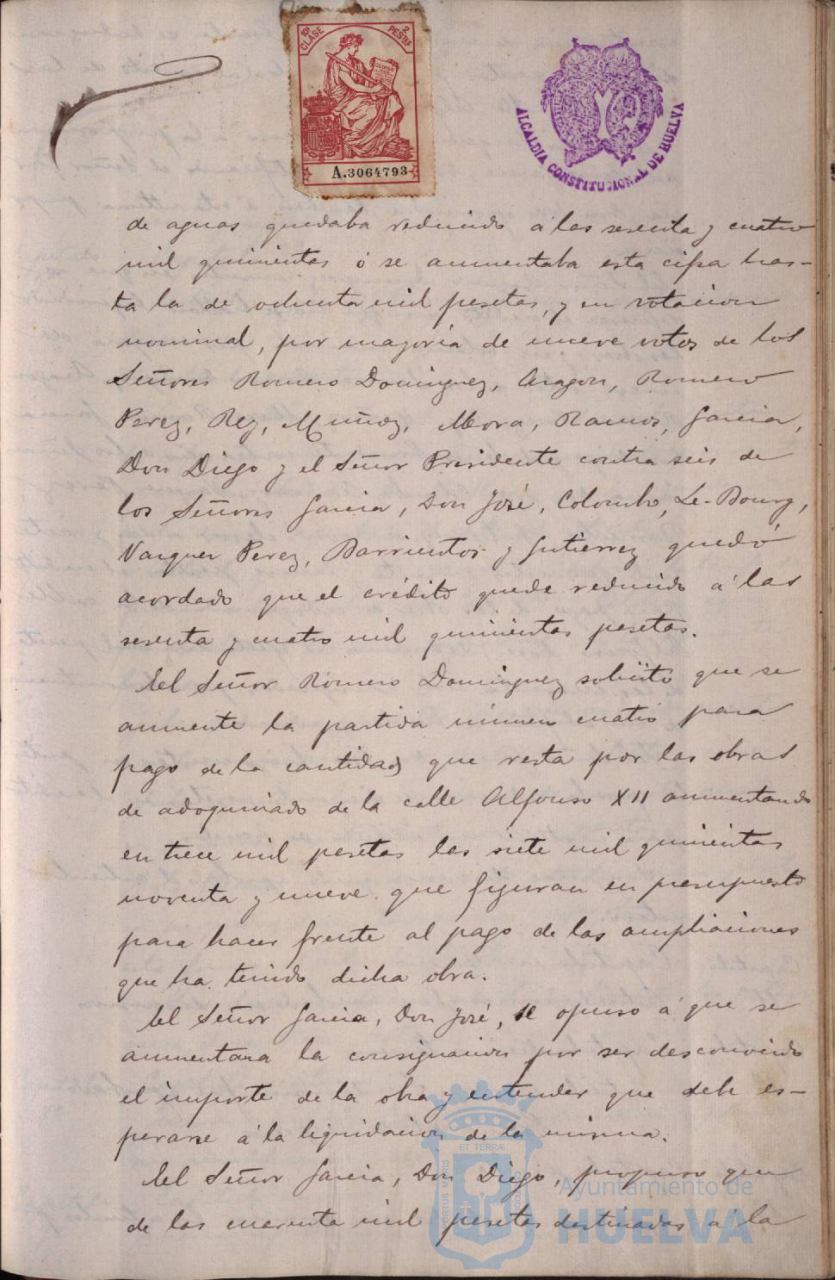 10ª CLASE 2 PESTAS
A.3064793
ALCALDIA CONSTITUCIONAL DE HUELVA
de aguas quedaba reducido á las sesenta y cuatro
mil quinientas ó se aumentaba esta cifra has-
ta la de ochenta mil pesetas, y en votacion
nominal, por mayoría de nueve votos de los
Señores Romero Dominguez, Aragon, Romero
Perez, Rey, Muñoz, Mora, Ramos, Garcia,
Don Diego y el Señor Presidente contra seis de
los Señores Garcia, Don José, Colombo, Le-Bourg,
Vazquez Perez, Barrientos y Gutierrez quedó
acordado que el crédito quede reducido á las
sesenta y cuatro mil quinientas pesetas.
El Señor Romero Dominguez solicitó que se
aumente la partida número cuatro para
pago de la cantidad que resta por las obras
de adoquinado de la calle Alfonso XII aumentando
en trece mil pesetas las siete mil quinientas
noventa y nueve que figuran en presupuesto
para hacer frente al pago de las ampliaciones
que ha tenido dicha obra.
El Señor Garcia, Don José, se opuso á que se
aumentara la consignacion por ser desconocido
el importe de la obra y entender que debe es-
perarse á la liquidacion de la misma.
El Señor Garcia, Don Diego, propuso que
de las cuarenta mil pesetas destinadas á la
Ayuntamiento de
HUELVA